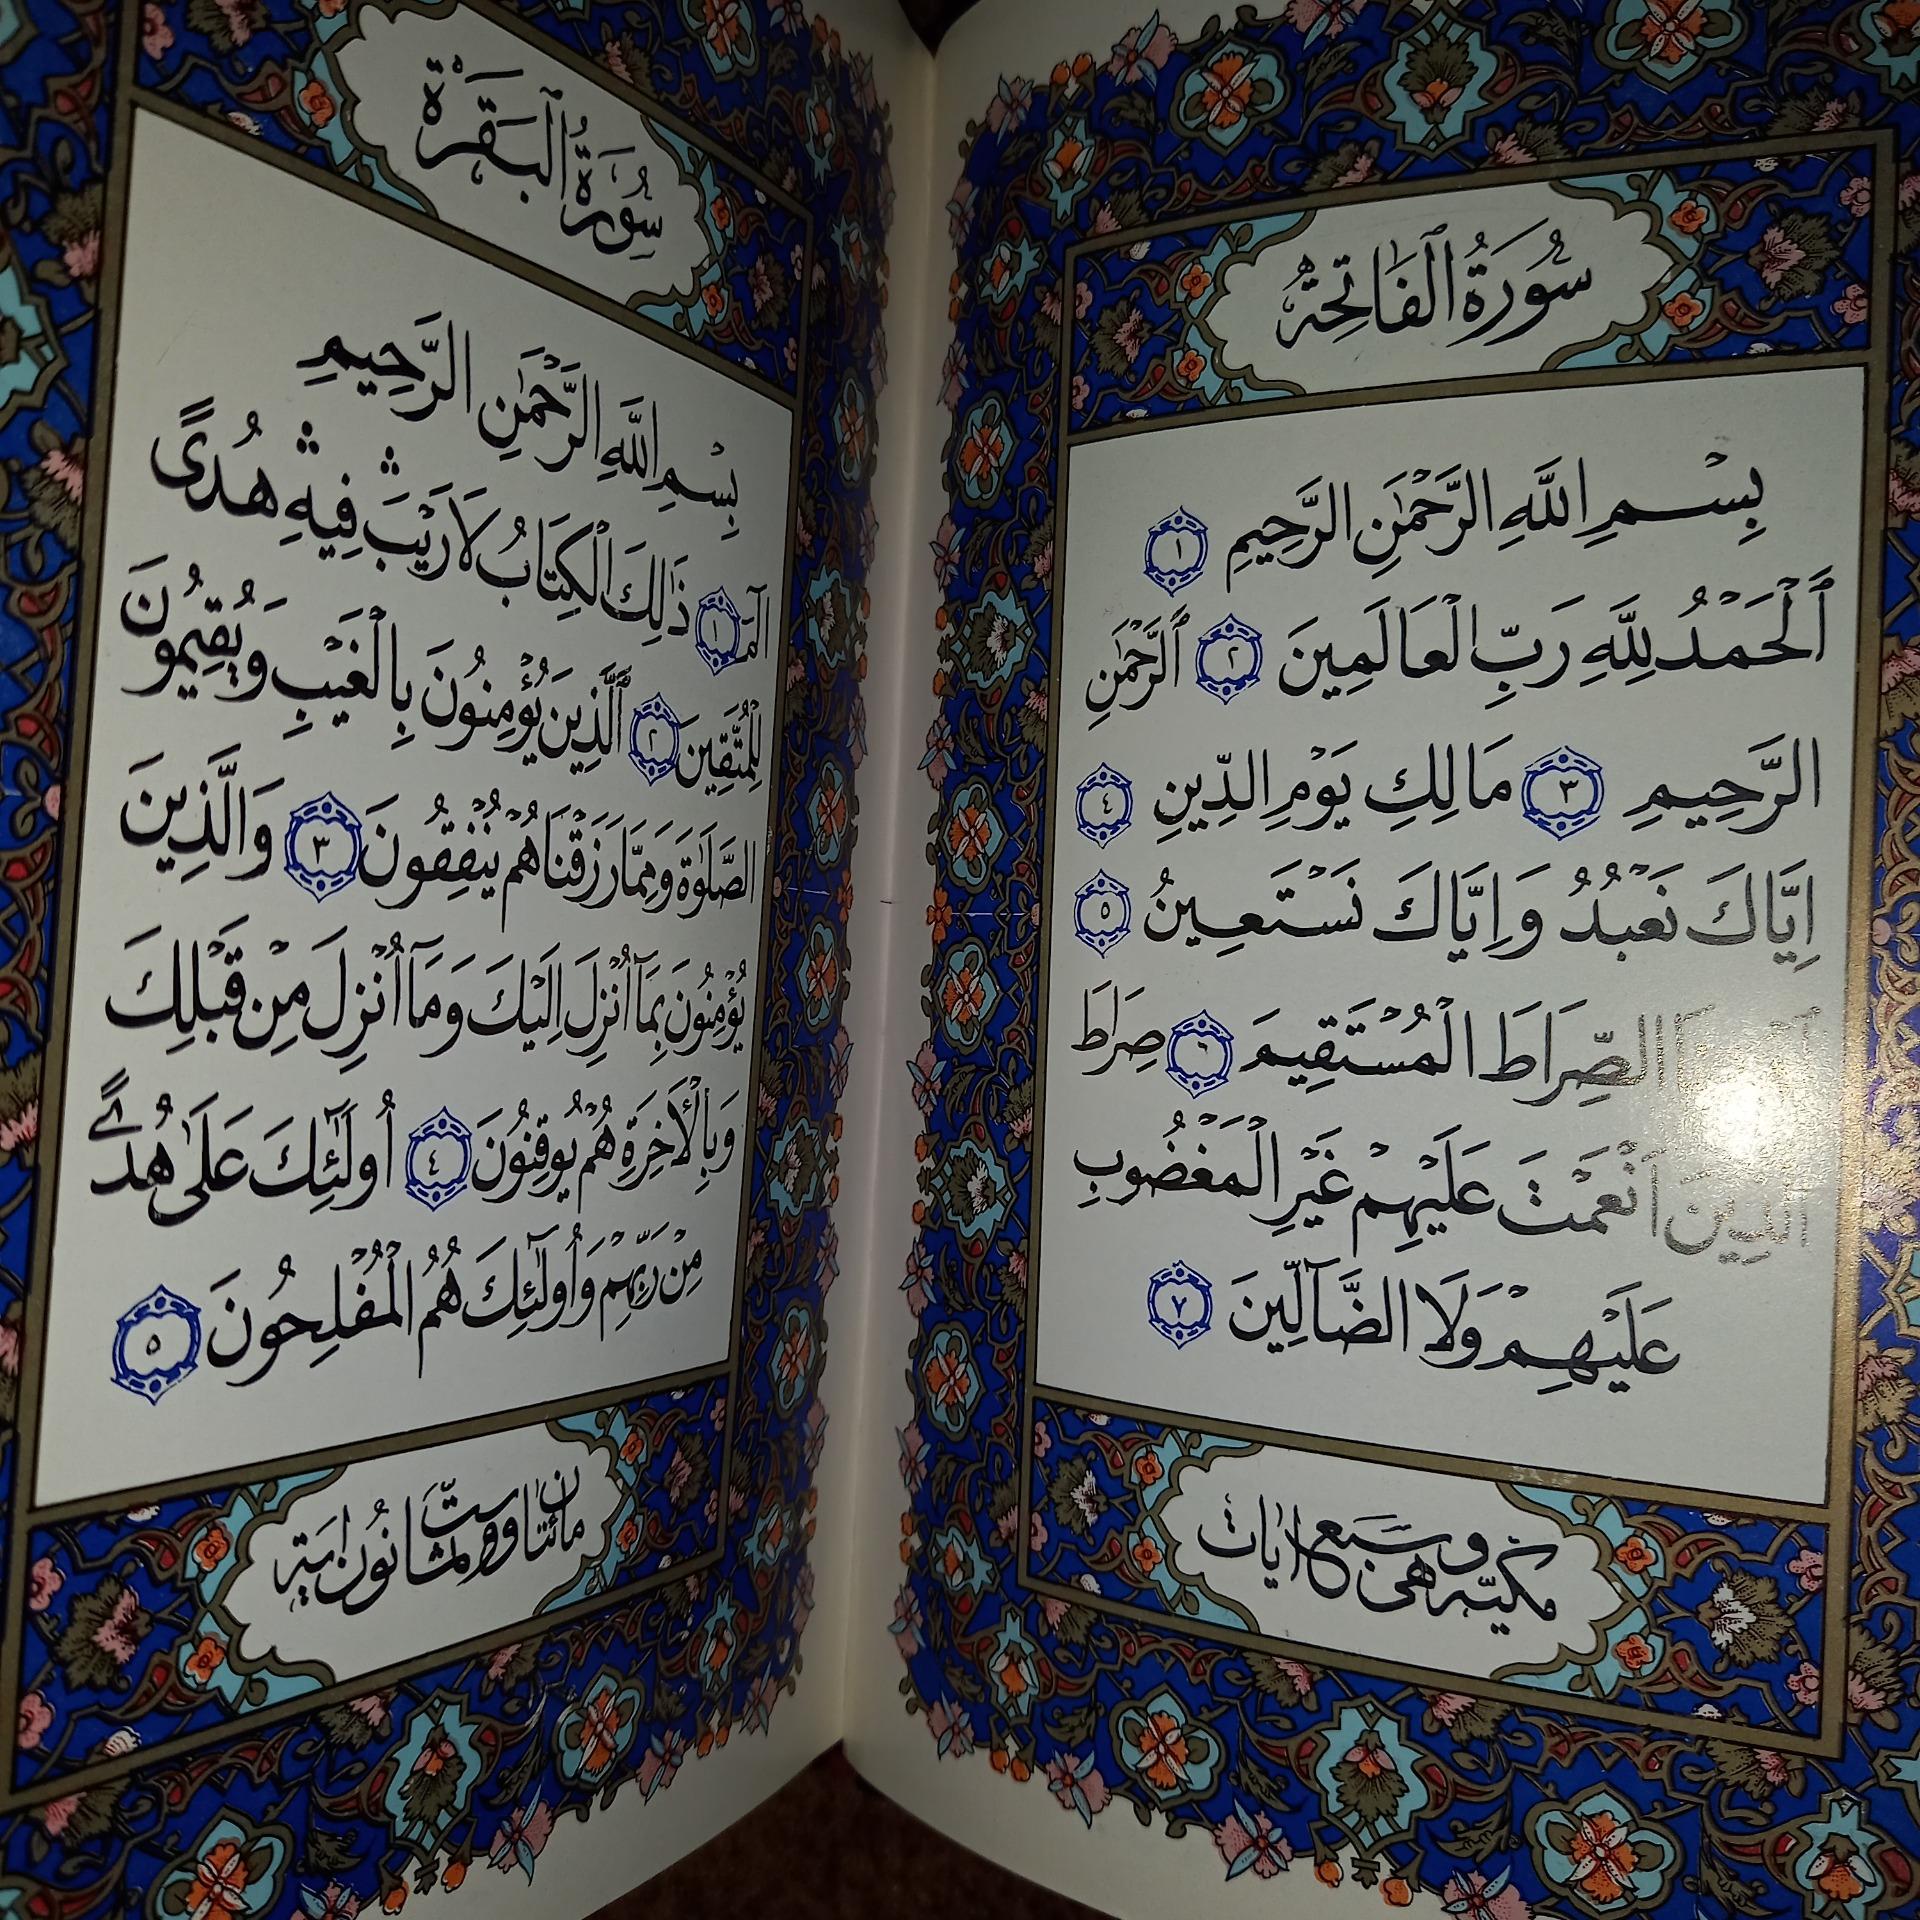 سُورَةُ ٱلْفَاتِحَةِ
بِسْمِ اللَّهِ الرَّحْمٰنِ الرَّحِيمِ ١
ٱلْحَمْدُ لِلَّهِ رَبِّ الْعَالَمِينَ ٢ ٱلرَّحْمٰنِ
الرَّحِيمِ ٣ مَالِكِ يَوْمِ الدِّينِ ٤
اِيَّاكَ نَعْبُدُ وَاِيَّاكَ نَسْتَعِينُ ٥
الصِّرَاطَ الْمُسْتَقِيمَ ٦ صِرَاطَ
الَّذِينَ اَنْعَمْتَ عَلَيْهِمْ غَيْرِ الْمَغْضُوبِ
عَلَيْهِمْ وَلَا الضَّآلِّينَ ٧
مكيّة وهى سبع ايات
سُورَةُ ٱلْبَقَرَةِ
بِسْمِ اللَّهِ الرَّحْمٰنِ الرَّحِيمِ
الٓمٓ ١ ذٰلِكَ الْكِتَابُ لَا رَيْبَ ۛ فِيهِ ۛ هُدًى
لِلْمُتَّقِينَ ٢ ٱلَّذِينَ يُؤْمِنُونَ بِالْغَيْبِ وَيُقِيمُونَ
الصَّلٰوةَ وَمِمَّا رَزَقْنَاهُمْ يُنْفِقُونَ ٣ وَالَّذِينَ
يُؤْمِنُونَ بِمَآ اُنْزِلَ اِلَيْكَ وَمَآ اُنْزِلَ مِنْ قَبْلِكَ
وَبِالْاٰخِرَةِ هُمْ يُوقِنُونَ ٤ اُولٰٓئِكَ عَلٰى هُدًى
مِنْ رَبِّهِمْ وَاُولٰٓئِكَ هُمُ الْمُفْلِحُونَ ٥
مائتان وستّ وثمانون اية